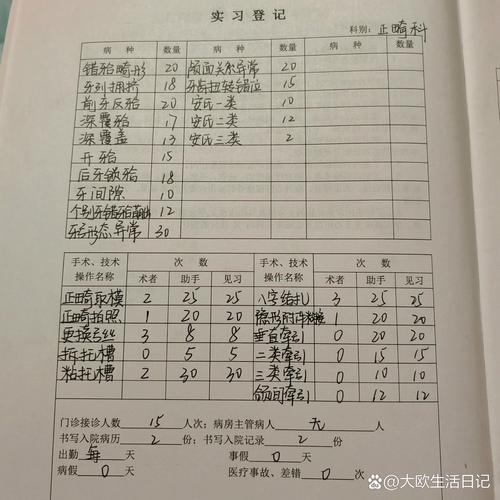 实习登记
科别: 正畸科
病种 数量 病种 数量 病种 数量
错𬌗畸形 20 颌面关系异常 20
牙列拥挤 18 牙齿扭转错位 15
前牙反𬌗 20 安氏一类 10
深覆𬌗 17 安氏二类 12
深覆盖 13 安氏三类 2
开𬌗 15
后牙锁𬌗 18
牙间隙 10
个别牙错𬌗 12
牙形态异常 30
手术、技术操作名称 次数 手术、技术操作名称 次数
术者 助手 见习 术者 助手 见习
正畸取模 2 25 25 八字结扎 3 25 25
正畸拍照 1 20 20 隐形附件粘接 1 20 20
更换弓丝 3 8 8 垂直牵引 0 20 20
拆托槽 0 5 5 二类牵引 0 15 15
粘托槽 2 30 30 三类牵引 0 10 10
颌间牵引 0 12 12
门诊接诊人数 15 人次; 病房主管病人 无 人
书写入院病历 2 份; 书写入院记录 2 份
出勤 每 天 事假 0 天
病假 0 天 医疗事故、差错 0 次
大欧生活日记